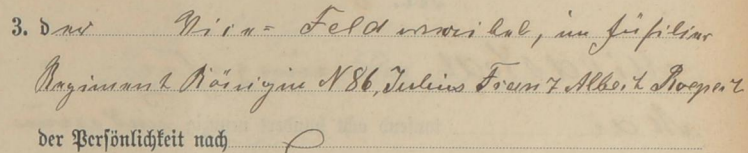 3. der Vice= Feldwewibel, im Füsilier
Regiment Königin N 86, Julius Franz Albert Roepert
der Persönlichkeit nach